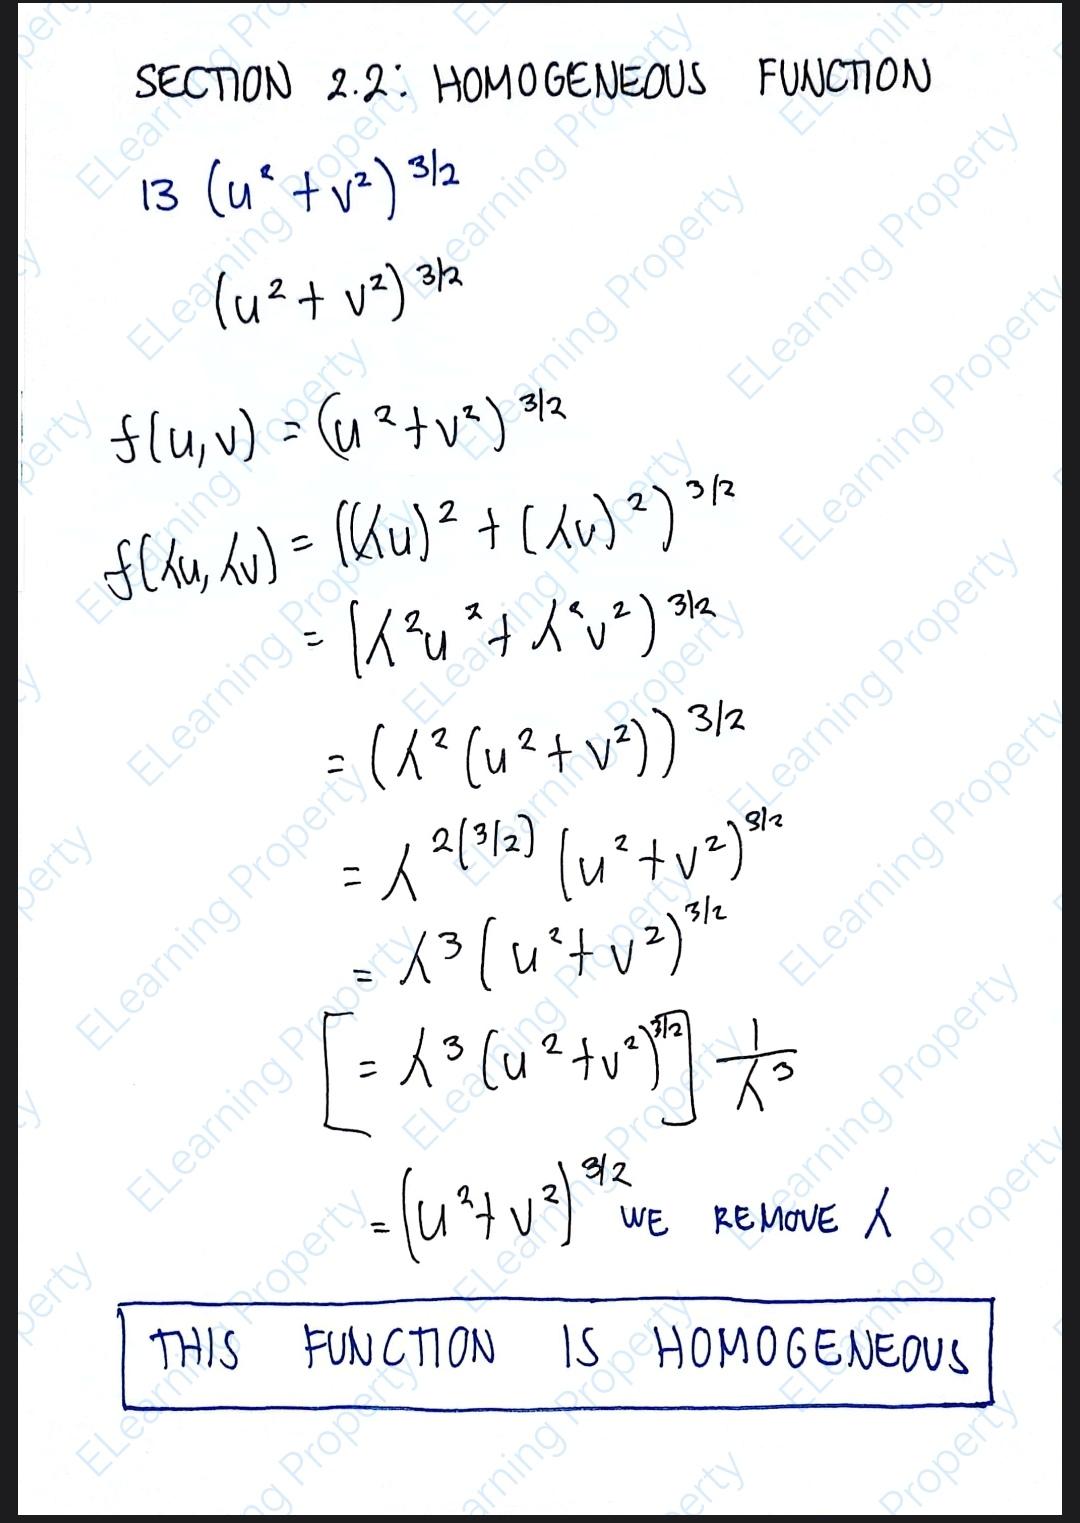 SECTION 2.2: HOMOGENEOUS FUNCTION
13 (u² + v²) 3/2
(u² + v²) 3/2
f(u,v) = (u²+v²) 3/2
f(λu, λv) = ((λu)² + (λv)²) 3/2
= (λ²u² + λ²v²) 3/2
= (λ² (u² + v²)) 3/2
= λ 2(3/2) (u² + v²) 3/2
= λ³ (u² + v²) 3/2
[= λ³ (u² + v²) 3/2] 1/λ³
= (u² + v²) 3/2 WE REMOVE λ
THIS FUNCTION IS HOMOGENEOUS
ELearning Property